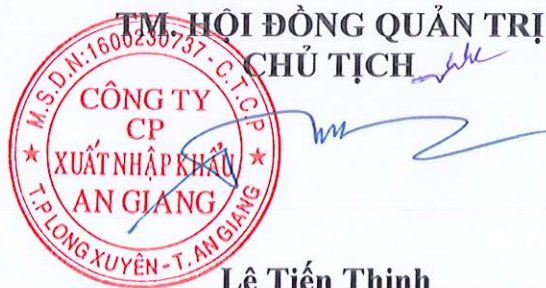 TM. HỘI ĐỒNG QUẢN TRỊ
CHỦ TỊCH
M.S.D.N:1600230737-C.T.C.P
CÔNG TY
CP
XUẤT NHẬP KHẨU
AN GIANG
T.P LONG XUYÊN-T.AN GIANG
Lê Tiến Thịnh